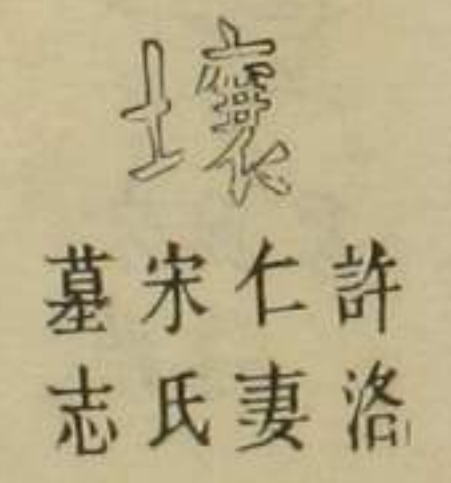 壤
許洛
仁妻
宋氏
墓志